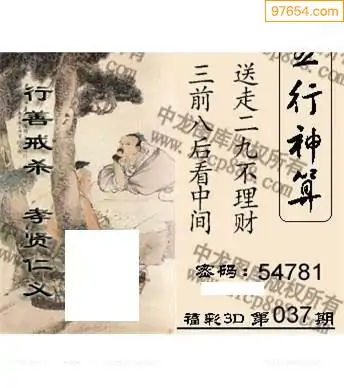 97654.com
行善戒杀 孝贤仁义
行神算
送走二九不理财
三前八后看中间
密码:54781
福彩3D 第037期
中龙图库版权所有
中龙图库版权所有